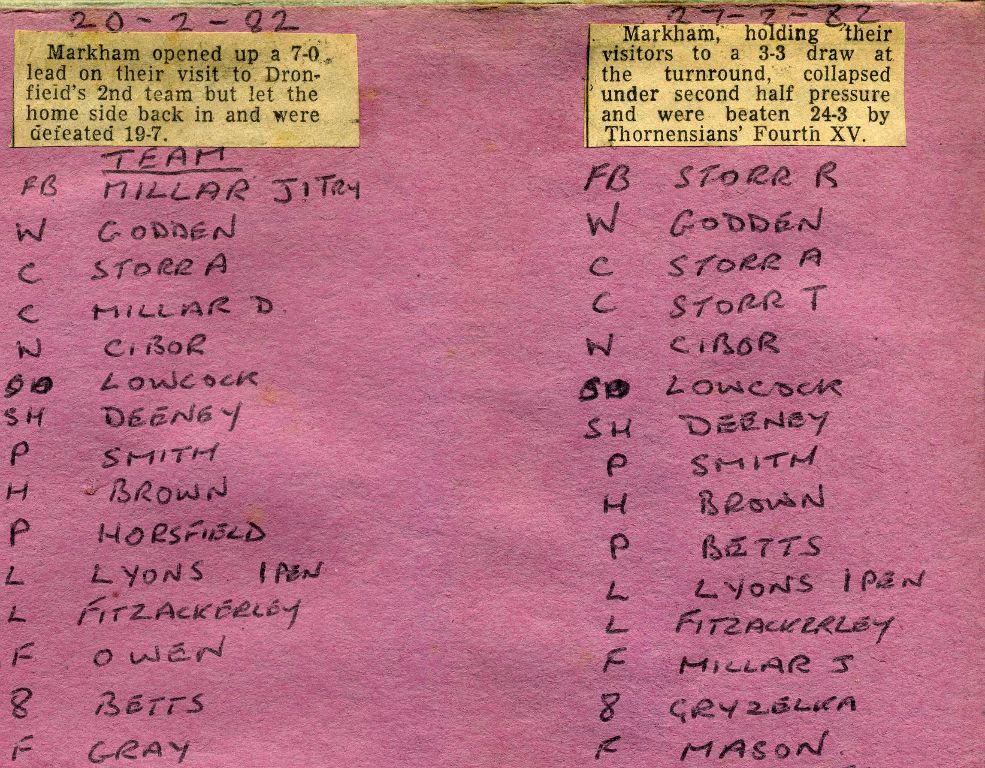 20-2-82
Markham opened up a 7-0
lead on their visit to Dron-
field's 2nd team but let the
home side back in and were
defeated 19-7.
TEAM
FB MILLAR J 1TRY
W GODDEN
C STORR A
C MILLAR D
W CIBOR
LOWCOCK
SH DEENEY
P SMITH
H BROWN
P HORSFIELD
L LYONS 1 PEN
L FITZACKERLEY
F OWEN
8 BETTS
F GRAY
27-2-82
Markham, holding their
visitors to a 3-3 draw at
the turnround, collapsed
under second half pressure
and were beaten 24-3 by
Thornensians' Fourth XV.
FB STORR R
W GODDEN
C STORR A
C STORR T
W CIBOR
LOWCOCK
SH DEENEY
P SMITH
H BROWN
P BETTS
L LYONS 1 PEN
L FITZACKERLEY
F MILLAR J
8 GRYZELKA
F MASON